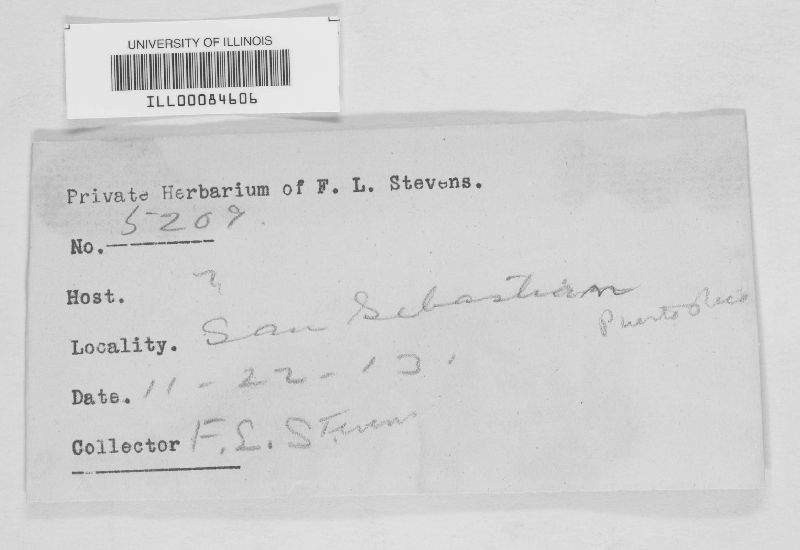 UNIVERSITY OF ILLINOIS
ILL00084606
Private Herbarium of F. L. Stevens.
No. 5209
Host. ?
Locality. San Sebastian Puerto Rico
Date. 11-22-13.
Collector F. L. Stevens